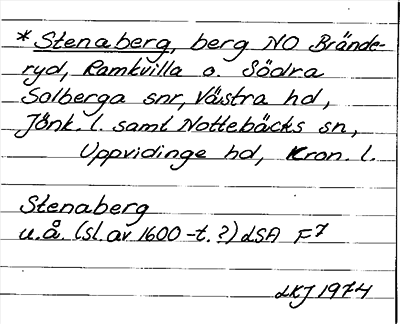 * Stenaberg, berg NO Brände-
ryd, Ramkvilla o. Södra
Solberga snr, Västra hd,
Jönk. l. samt Nottebäcks sn,
Uppvidinge hd, Kron. l.
Stenaberg
u.å. (sl. av 1600-t. ?) LSA F7
LKJ 1974